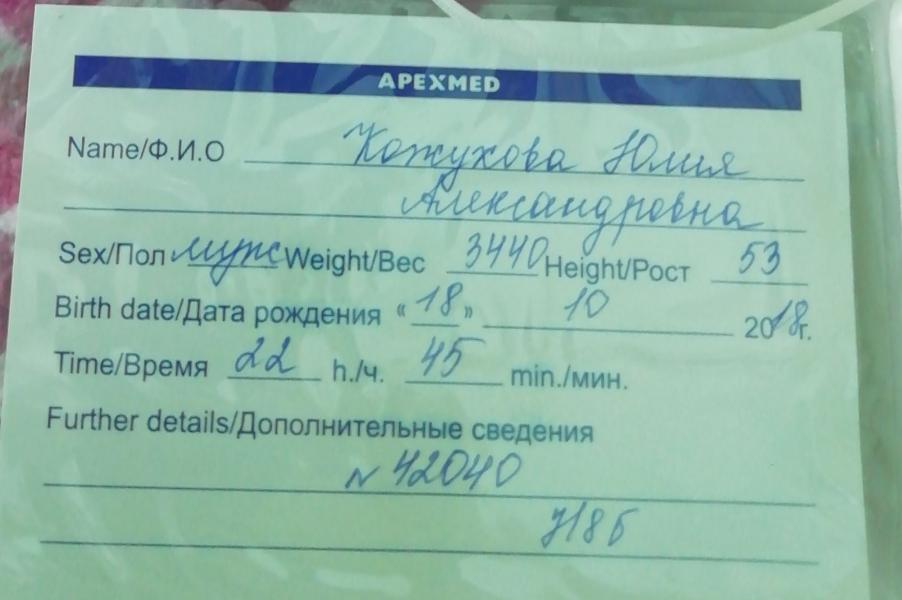 APEXMED
Name/Ф.И.О Кожухова Юлия
Александровна
Sex/Пол муж Weight/Вес 3440 Height/Рост 53
Birth date/Дата рождения «18» 10 2018г.
Time/Время 22 h./ч. 45 min./мин.
Further details/Дополнительные сведения
N 42040